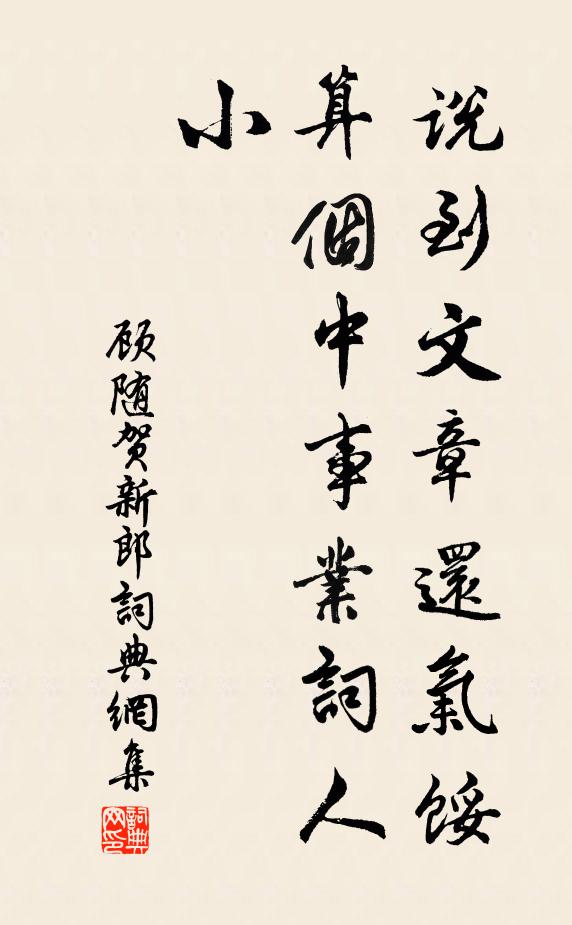 说到文章還氣餒
算個中事業詞人
小
顾随贺新郎詞典網集
詞典网印